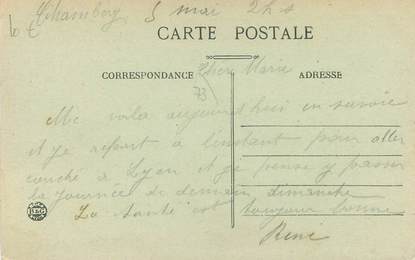 Chambery 5 mai 2h s
CARTE POSTALE
CORRESPONDANCE
ADRESSE
Cher Marie
73
Me voila aujourd'hui en savoie
et je repart à l'instant pour aller
couché à Lyon et je pense y passer
la journée de demain dimanche
La santé est toujour bonne
René
B&G